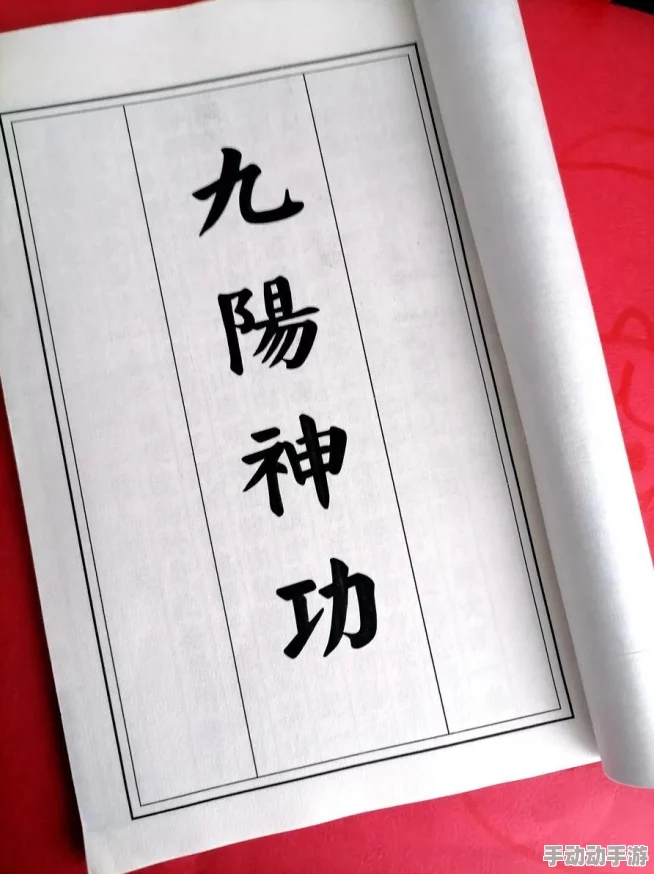 九陽神功
手动动手游